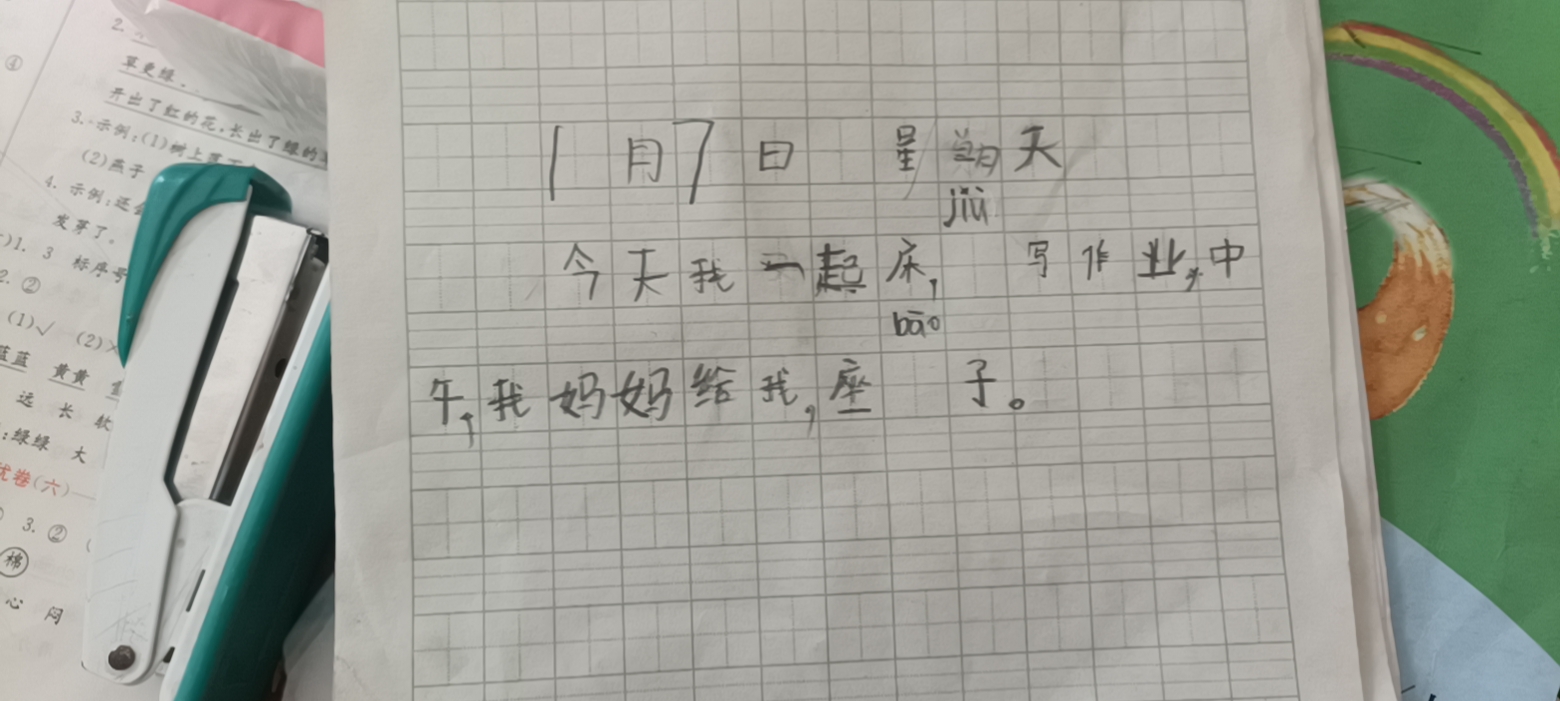 2.
草更绿。
④
开出了红的花,长出了绿的
3. 示例:(1)树上
(2)燕子
4. 示例:还会
发芽了。
1. 3 标序号
2. ②
(1)√ (2)×
蓝蓝 黄黄
远 长 软
:绿绿 大
优卷(六)
3. ②
棉
心 闷
1月7日 星期天
jiù
今天我一起床, 写作业,中
bāo
午,我妈妈给我,座 子。